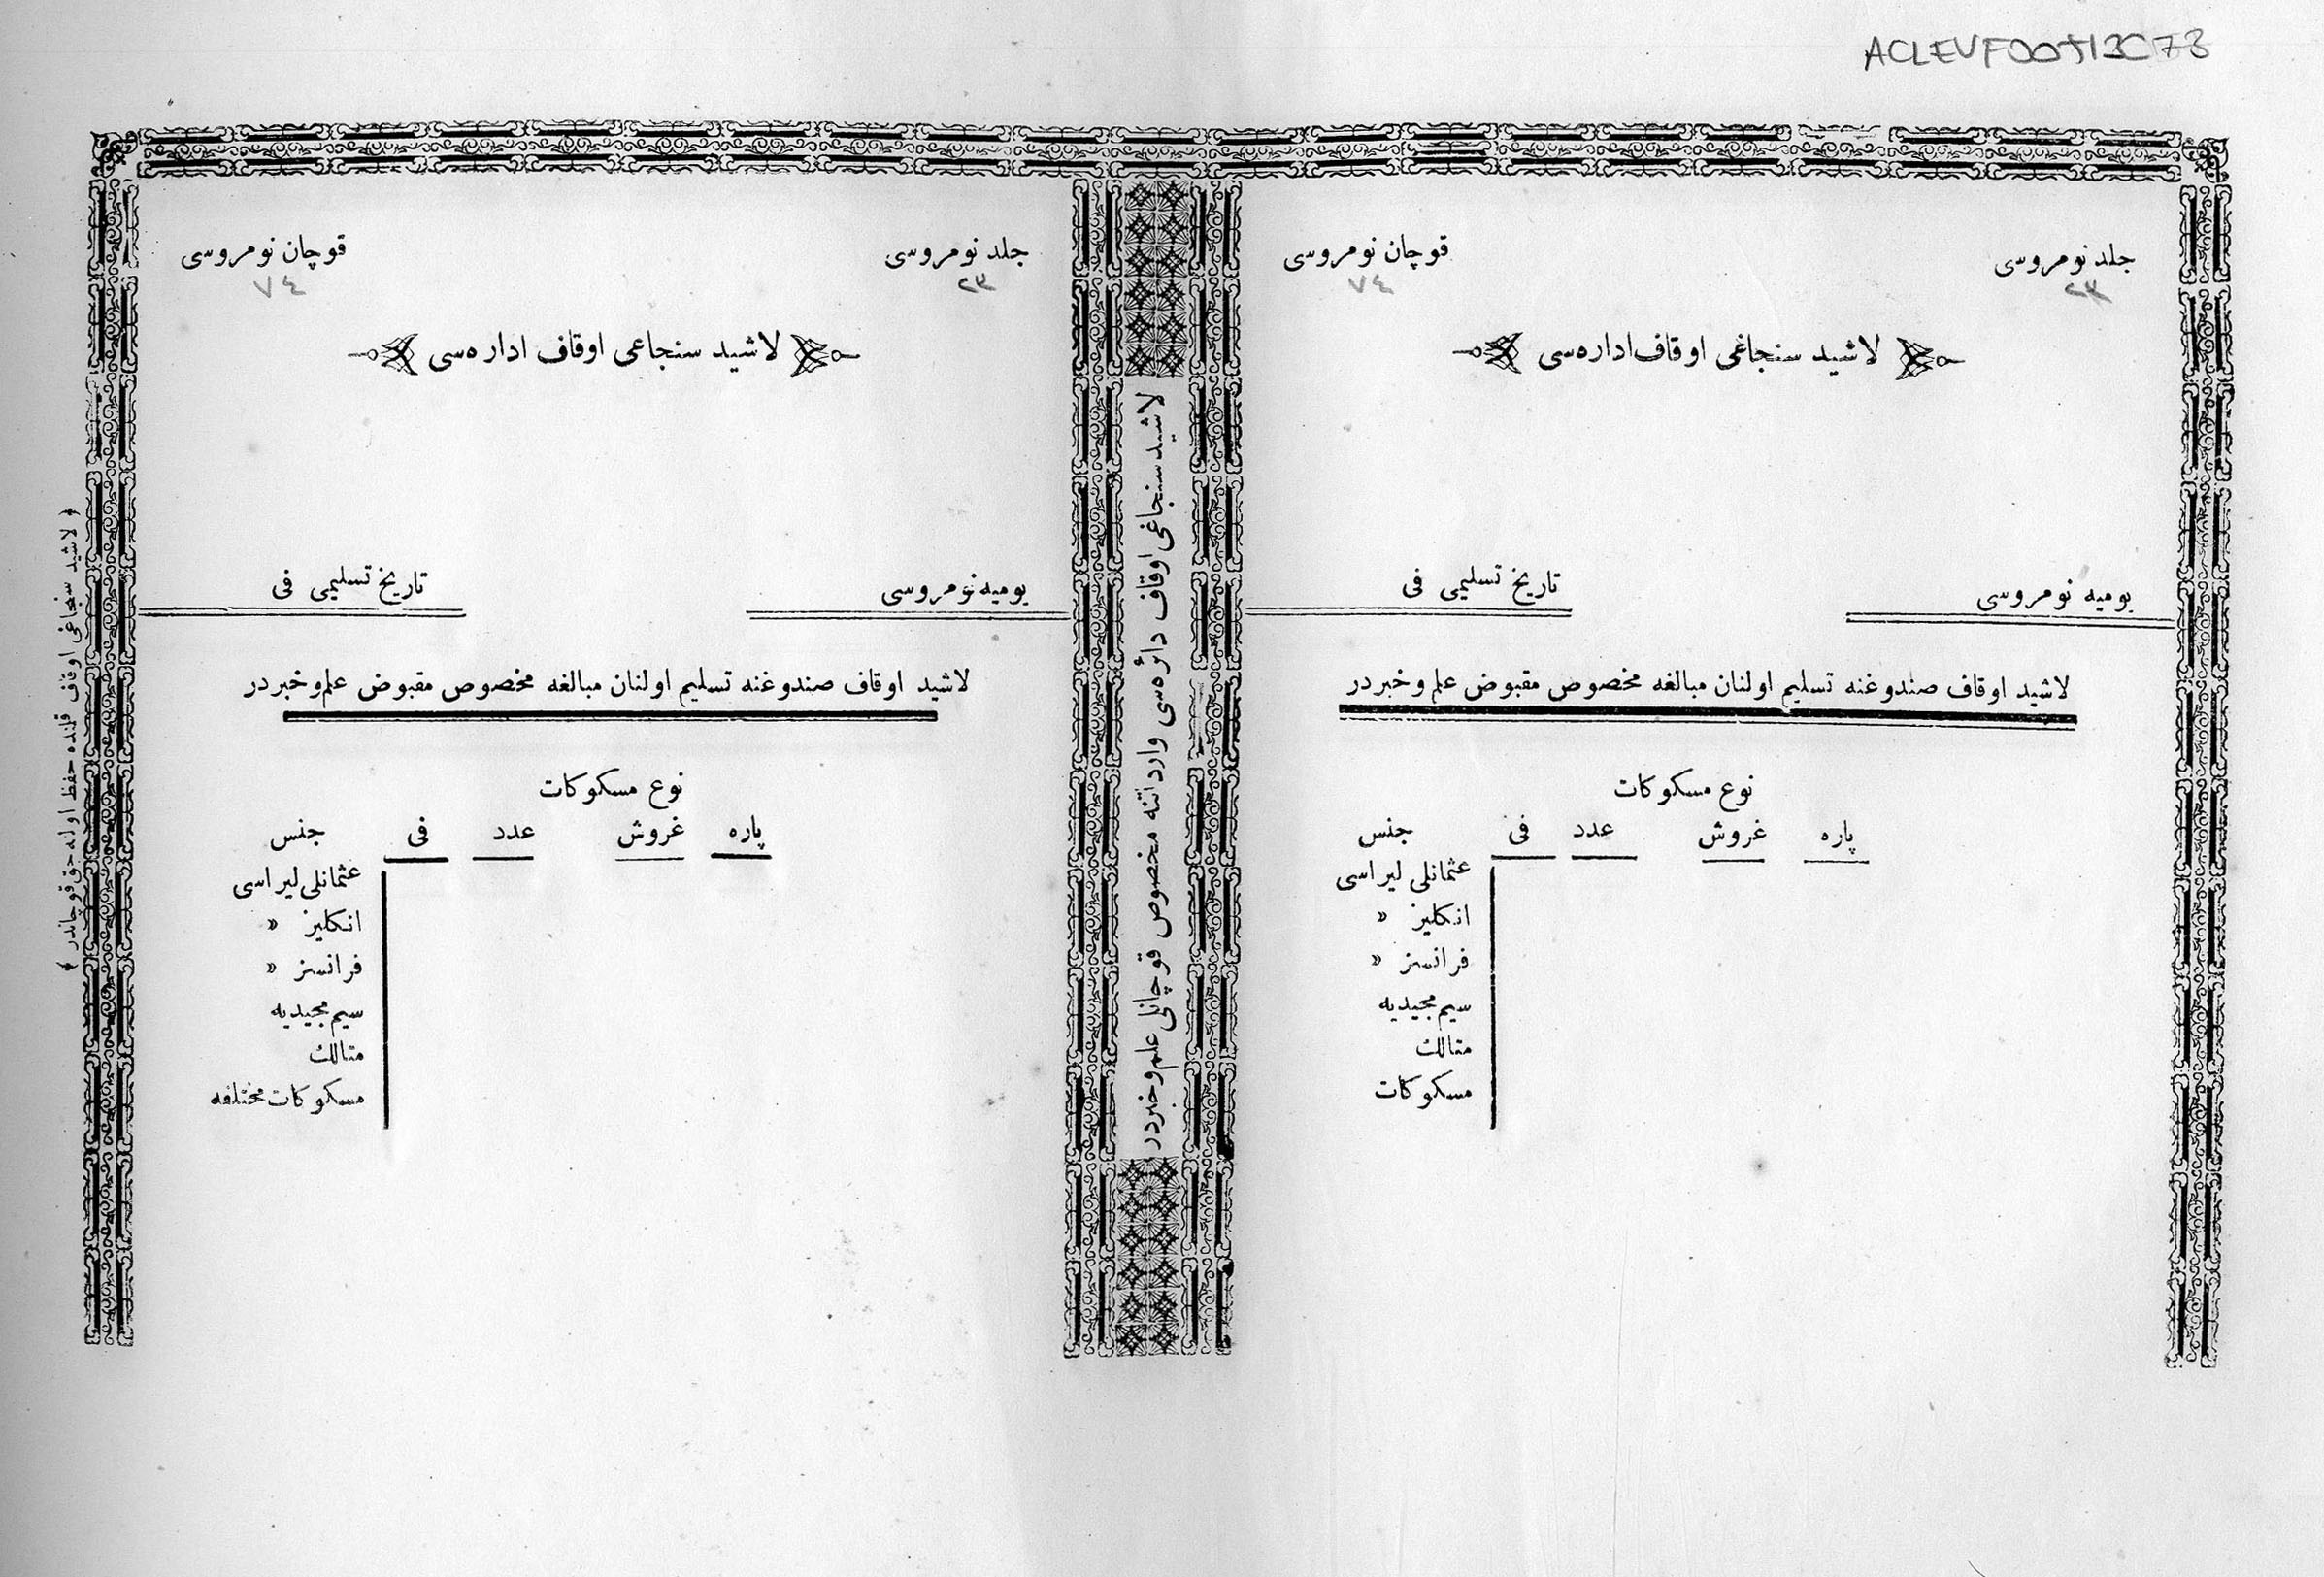 ACLEVF00513C73
جلد نومروسی
قوچان نومروسی
٢٣
٧٤
لاشید سنجاغی اوقاف اداره‌سی
یومیه نومروسی
تاریخ تسلیمی فی
لاشید اوقاف صندوغنه تسلیم اولنان مبالغه مخصوص مقبوض علم و خبردر
نوع مسکوکات
پاره غروش عدد فی جنس
عثمانلی لیراسی
انکلیز »
فرانسز »
سیم مجیدیه
متالك
مسکوکات
لاشید سنجاغی اوقاف دائره‌سی وارداتنه مخصوص قوچانلی علم و خبردر
جلد نومروسی
قوچان نومروسی
٢٣
٧٤
لاشید سنجاعی اوقاف اداره‌سی
یومیه نومروسی
تاریخ تسلیمی فی
لاشید اوقاف صندوغنه تسلیم اولنان مبالغه مخصوص مقبوض علم و خبردر
نوع مسکوکات
پاره غروش عدد فی جنس
عثمانلی لیراسی
انکلیز »
فرانسز »
سیم مجیدیه
متالك
مسکوکات مختلفه
لاشید سنجاغی اوقاف قلنده حفظ اوله جق قوچاندر